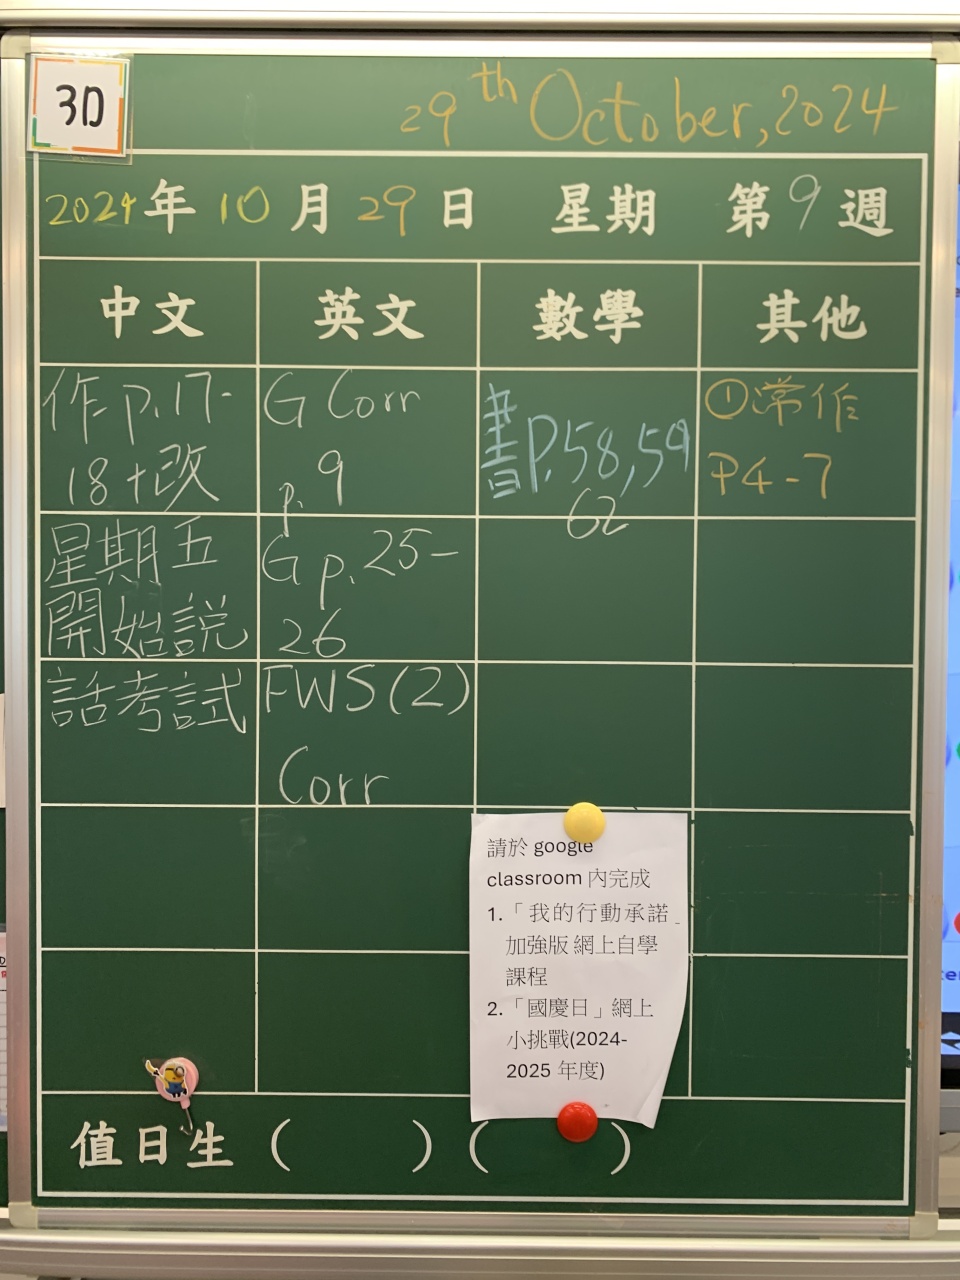 3D
29th October, 2024
2024年10月29日 星期 第9週
中文 英文 數學 其他
作p.17-
18+改
星期五
開始説
話考試
G Corr
p.9
G p.25-
26
FWS(2)
Corr
書P.58,59
62
①常作
P4-7
請於 google
classroom 內完成
1.「我的行動承諾
加強版 網上自學
課程
2.「國慶日」網上
小挑戰(2024-
2025 年度)
值日生 ( ) ( )